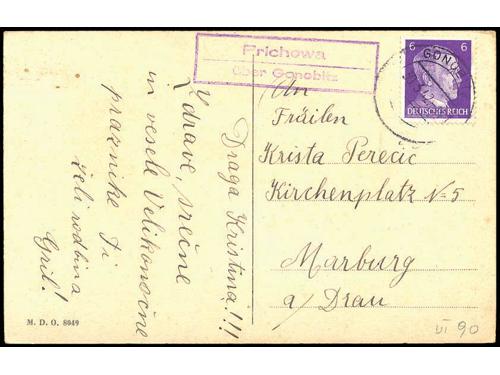 Frichowa
über Gonobitz
6 6
GONOB
DEUTSCHES REICH
Draga Kristina!!!
Zdrave, srečne
in vesele Velikonočne
praznike Ti
želi rodbina
Gril!
An
Fräilen
Krista Perecic
Kirchenplatz N-5
Marburg
a/Drau
M. D. O. 8049
VI 90